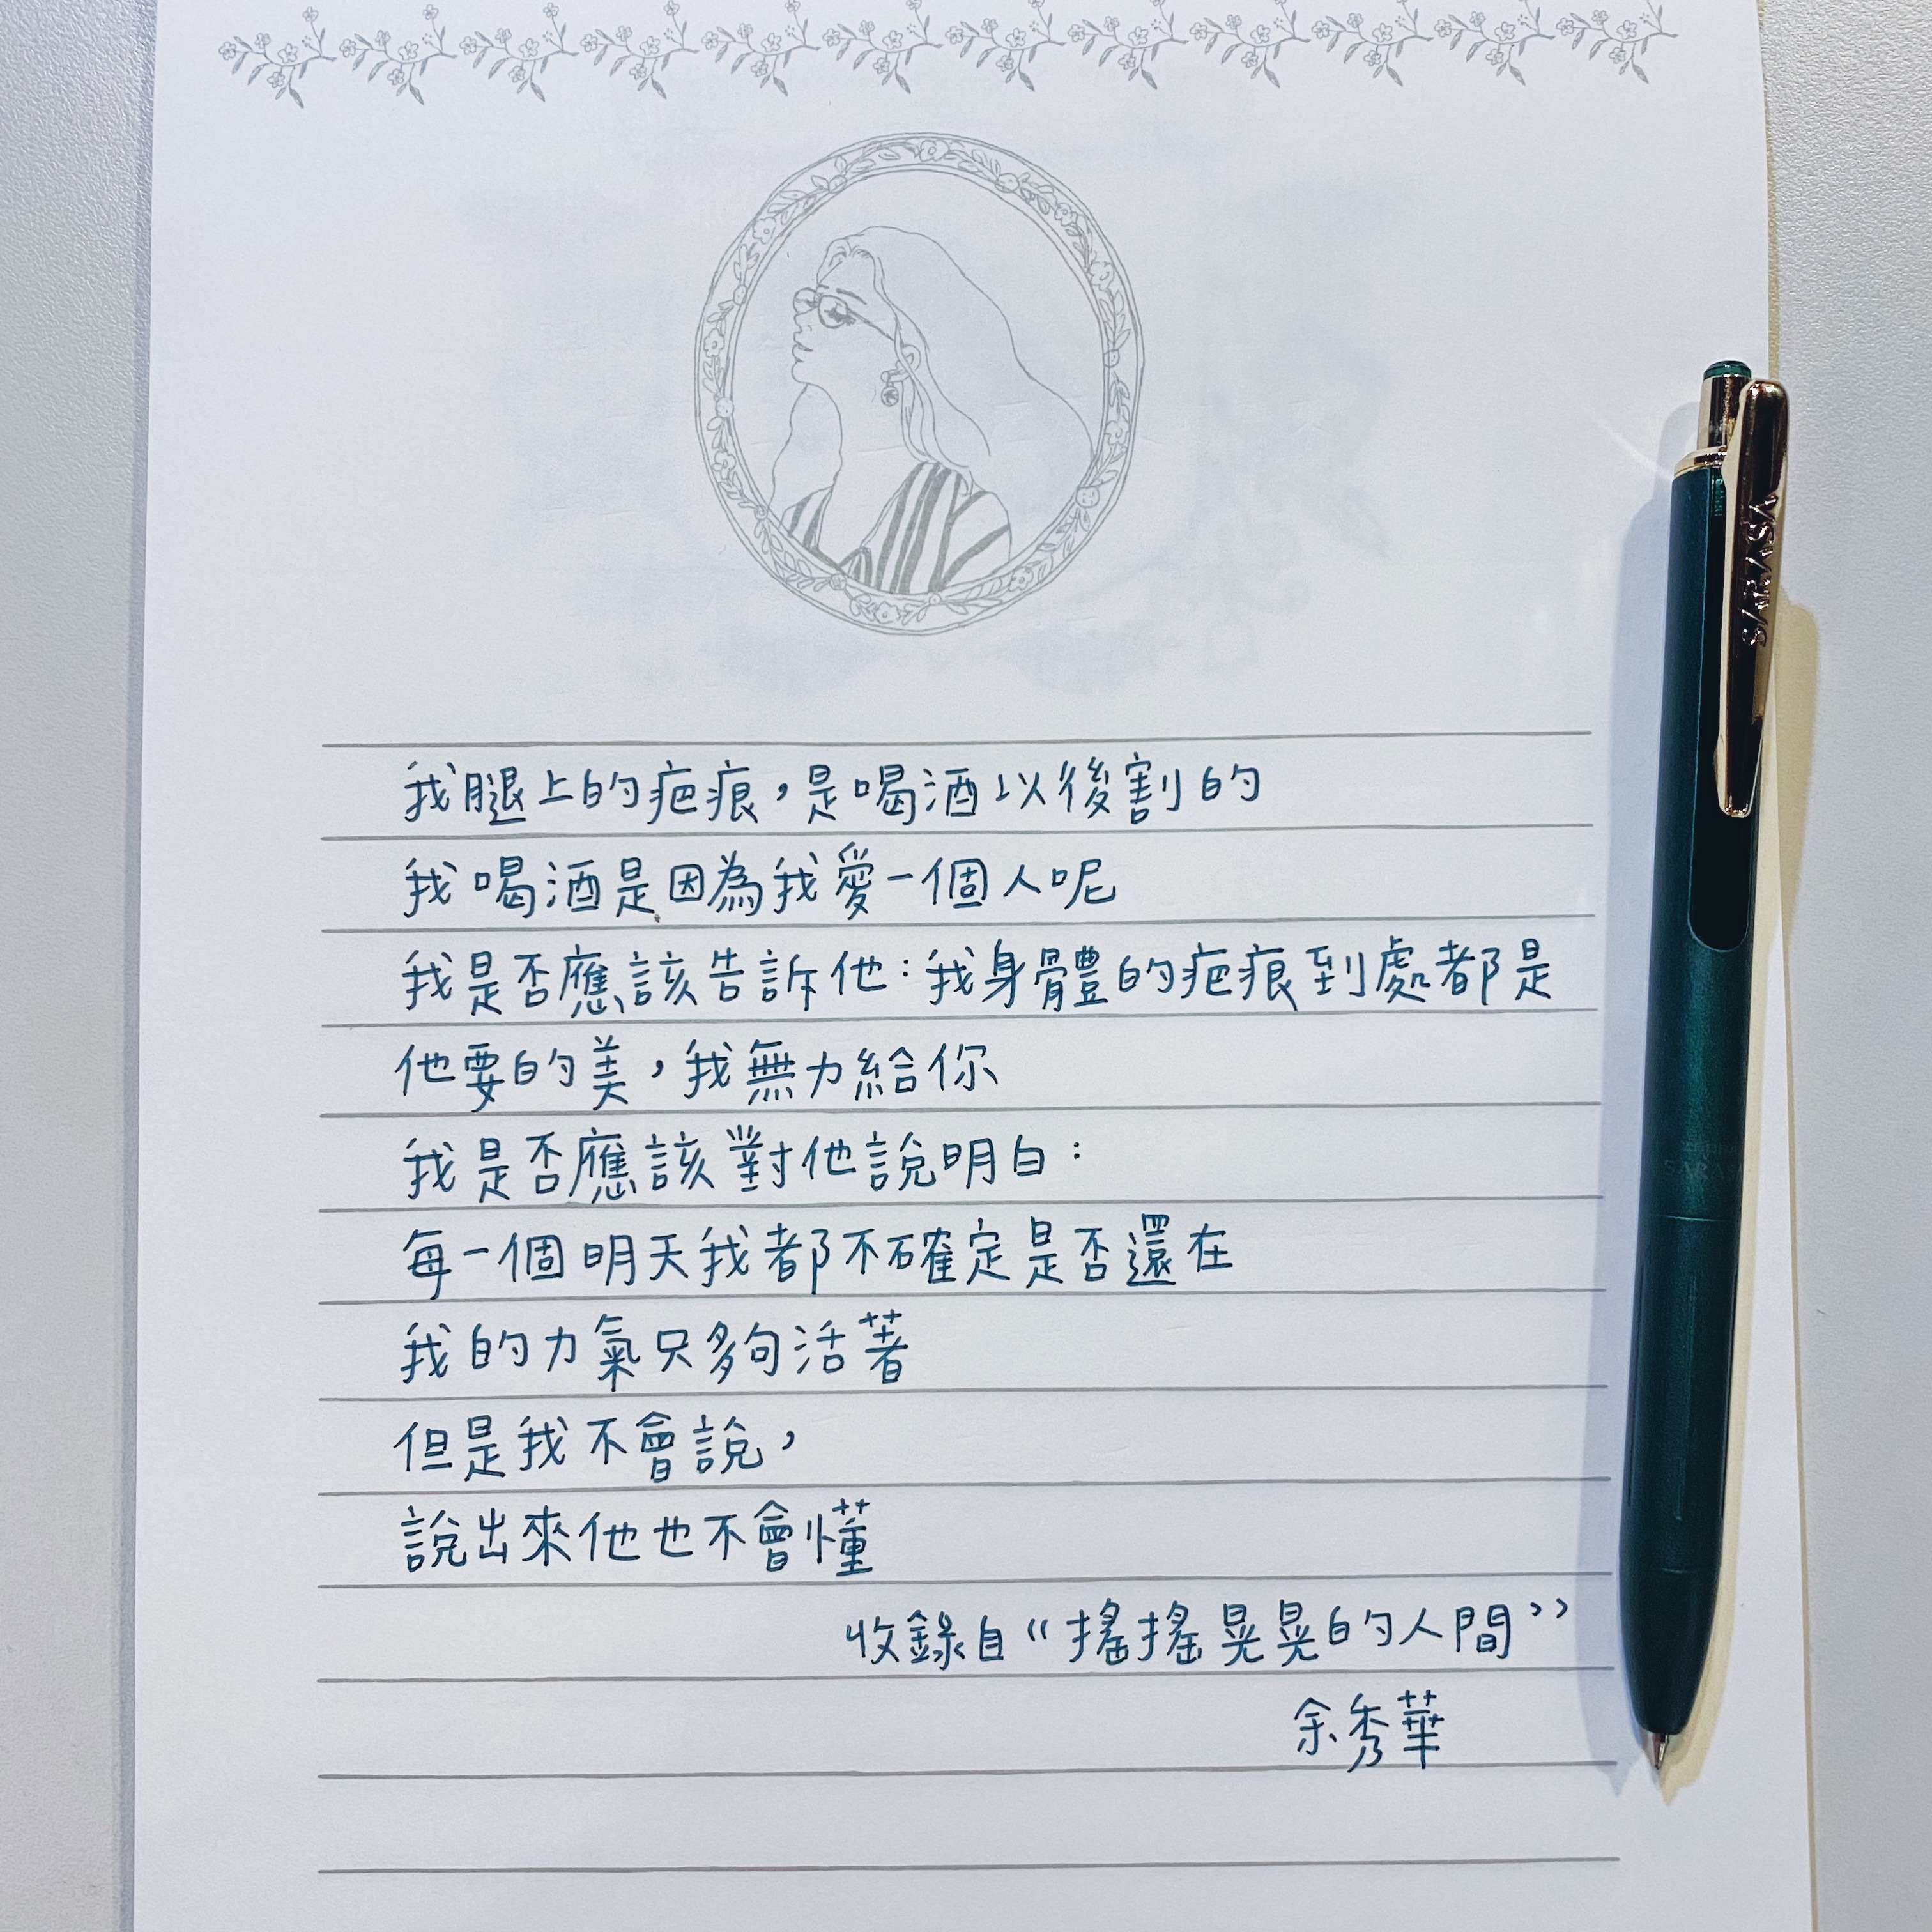 我腿上的疤痕，是喝酒以後割的
我喝酒是因為我愛一個人呢
我是否應該告訴他：我身體的疤痕到處都是
他要的美，我無力給你
我是否應該對他說明白：
每一個明天我都不確定是否還在
我的力氣只夠活著
但是我不會說，
說出來他也不會懂
收錄自《搖搖晃晃的人間》
余秀華
SARASA